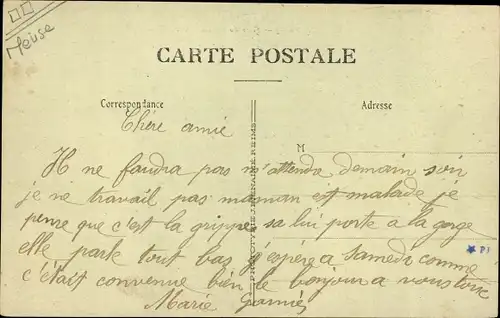 Meuse
CARTE POSTALE
Correspondance
Adresse
Chère amie
M
Il ne faudra pas m'attendre demain soir
je ne travail pas maman est malade je
pense que c'est la grippe sa lui porte a la gorge
elle parle tout bas j'espère a samedi comme
c'était convenue bien le bonjour a vous tous
Marie